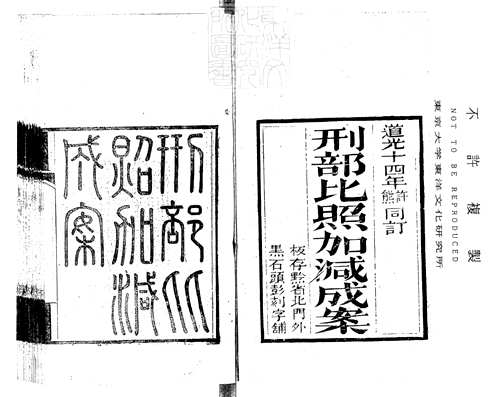 不許複製
NOT TO BE REPRODUCED
東京大学東洋文化研究所
道光十四年許熊同訂
刑部比照加減成案
板存黔省北門外
黑石頭彭刻字舖
刑部比
照加減
成案